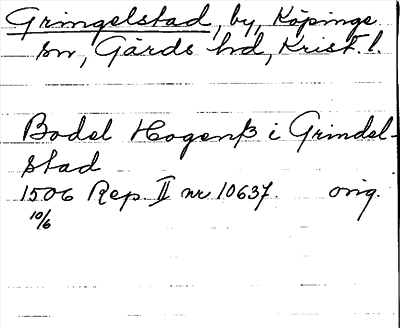 Gringelstad, by, Köpinge
sn, Gärds hd, Krist. l.
Bodel Hogenß i Grindel-
stad
1506 Rep. II nr 10637. orig.
10/6